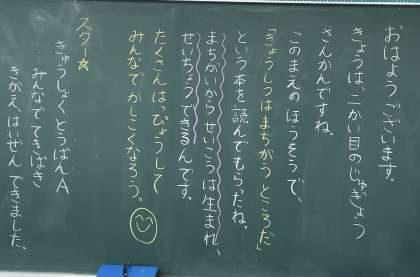 おはようございます。
きょうは、二かい目のじゅぎょう
さんかんですね。
このまえのほうそうで、
「きょうしつはまちがうところだ」
という本を読んでもらったね。
まちがいからせいこうは生まれ、
せいちょうできるんです。
たくさんはっぴょうして
みんなでかしこくなろう。
スター☆
きゅうしょくとうばんA
みんなでてきぱき
きがえ、はいぜんできました。